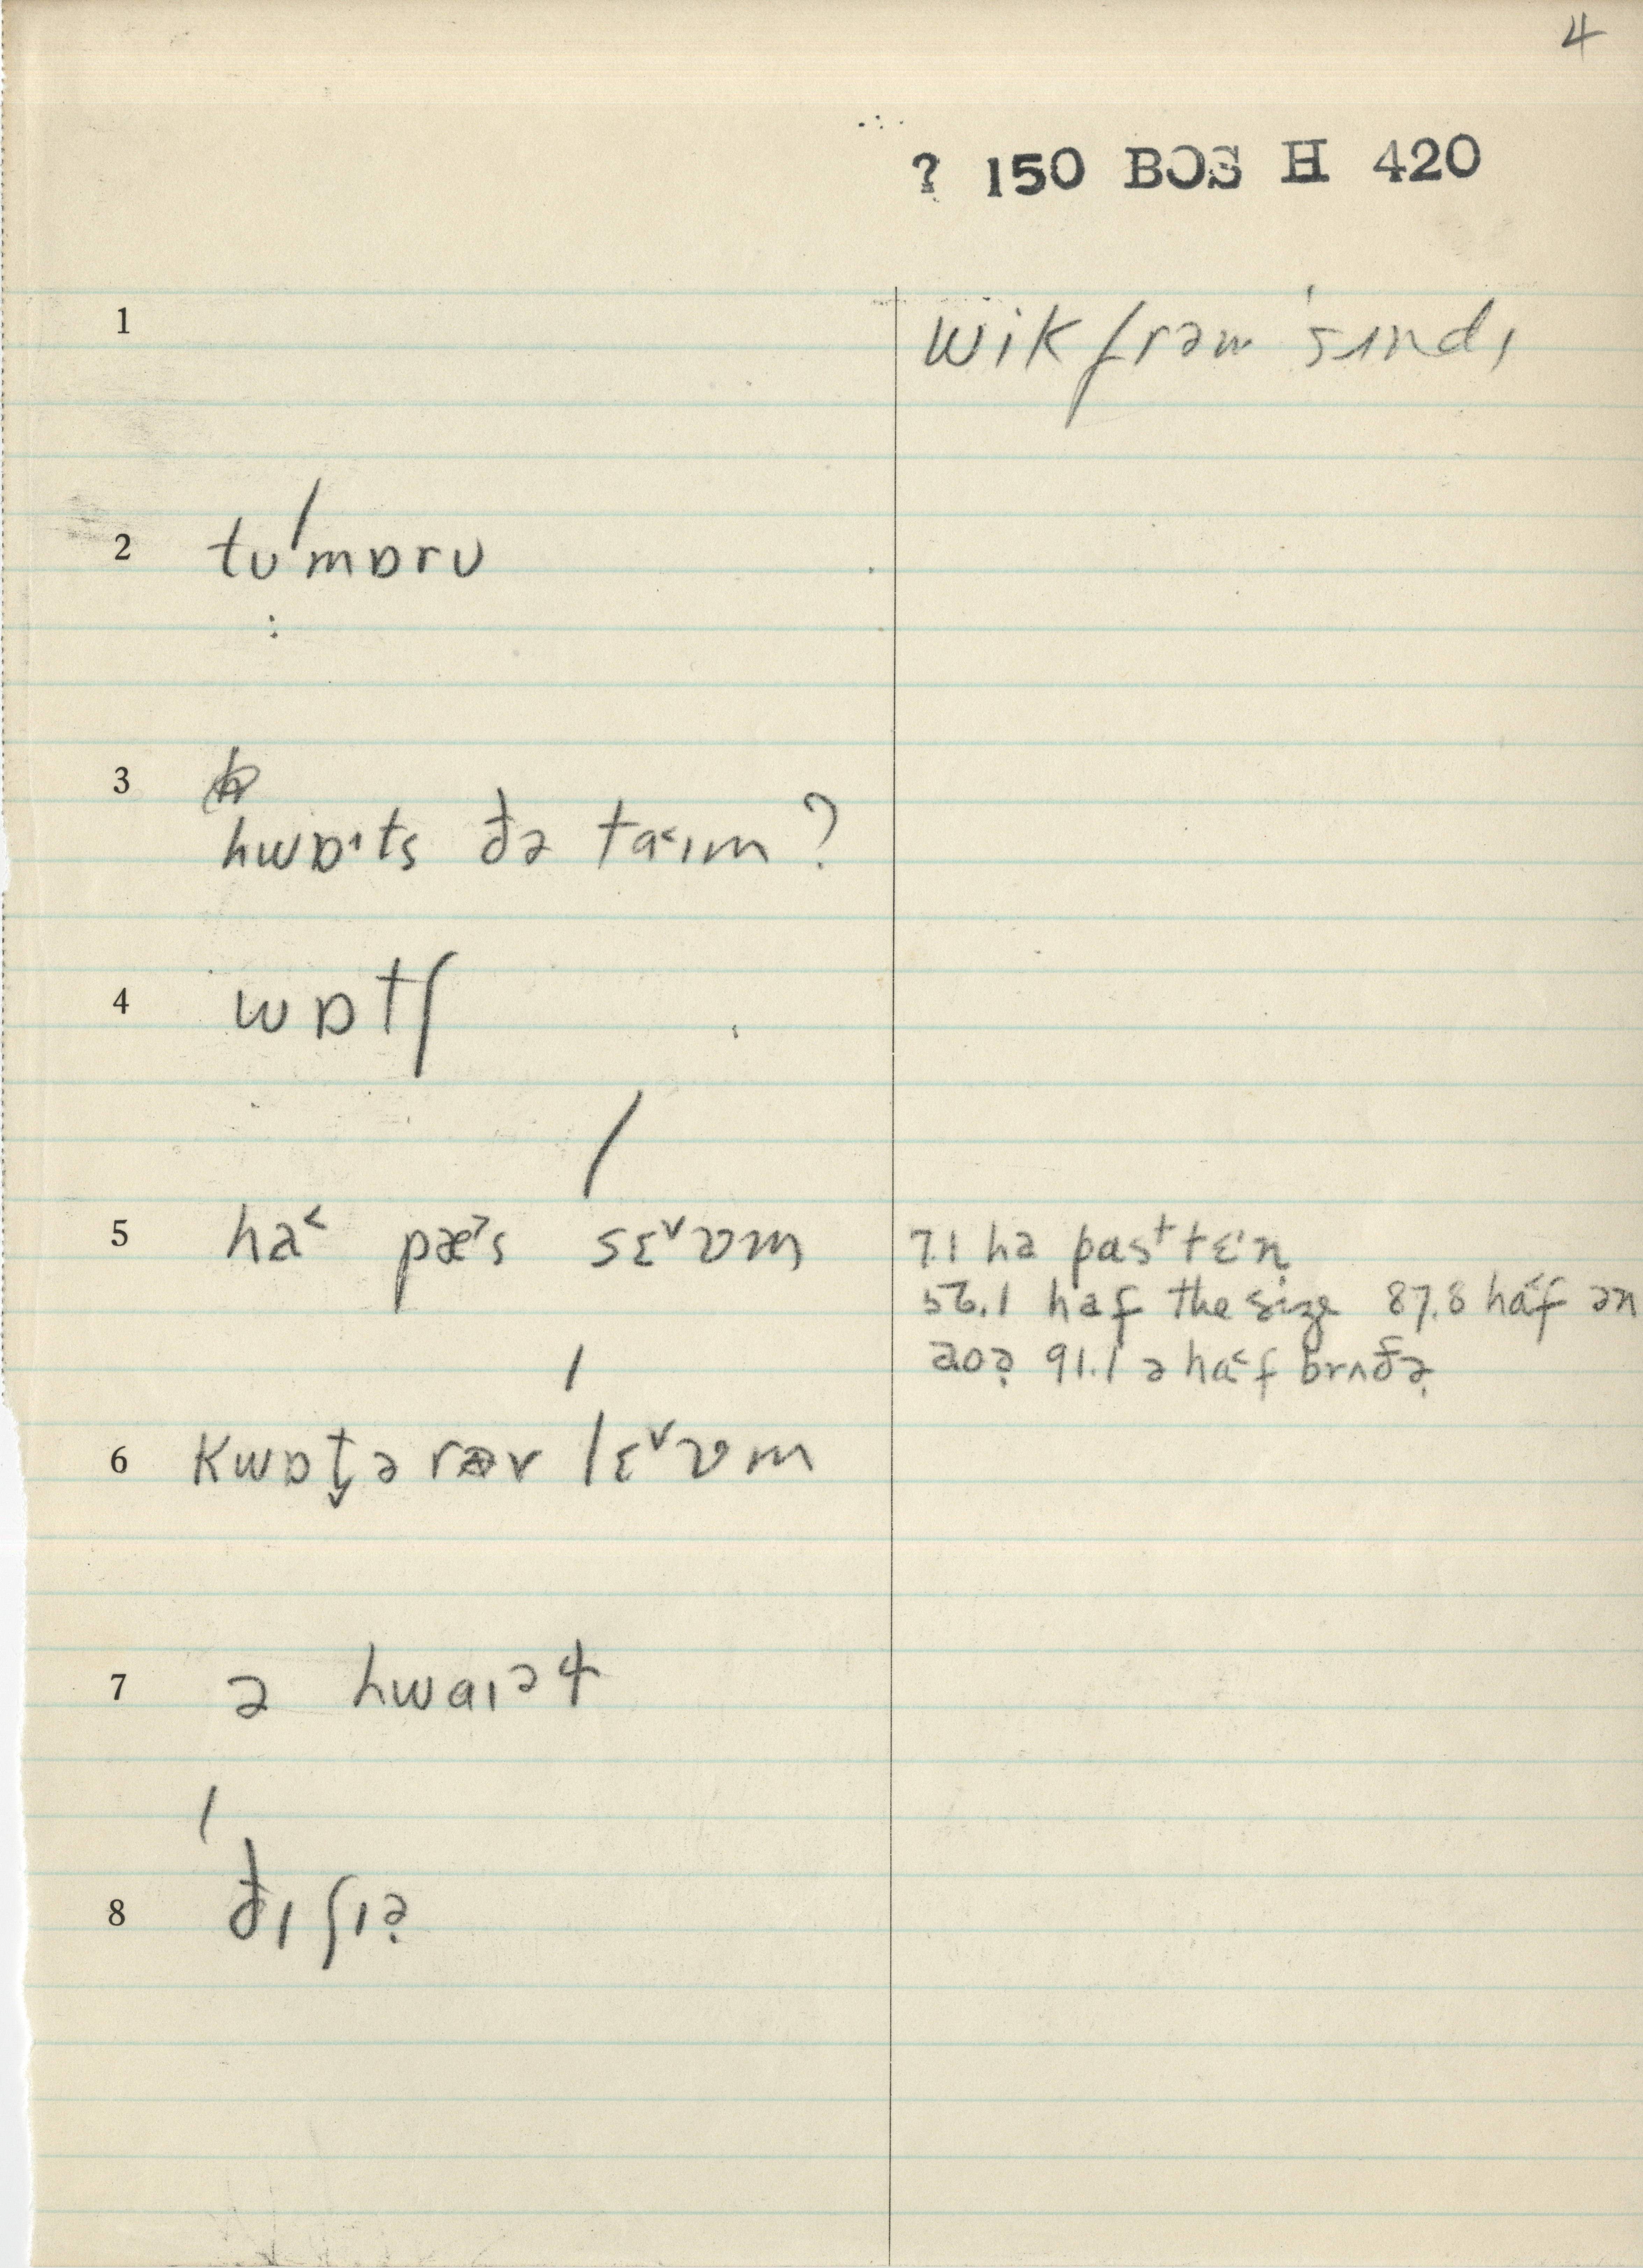 4
? 150 BOS H 420
1 wik frəm ˈsʌndɪ
2 tʊˈmɒrʊ
3
hwɒ˔ts ðə ta˂ɪm ?
4 wɒtʃ
5 ha˂ pæ˃s ˈsɛ˅ʋm 7.1 ha pas⁺ tɛ˔n
56.1 haf the size 87.8 ha˂f ən
aʊə̣ 91.1 ə ha˂f brʌðə̣
6 kwɒt̬ə rəv ˈlɛ˅ʋm
7 ə hwaɪəɫ
8 ˈðɪ ʃɪə̣